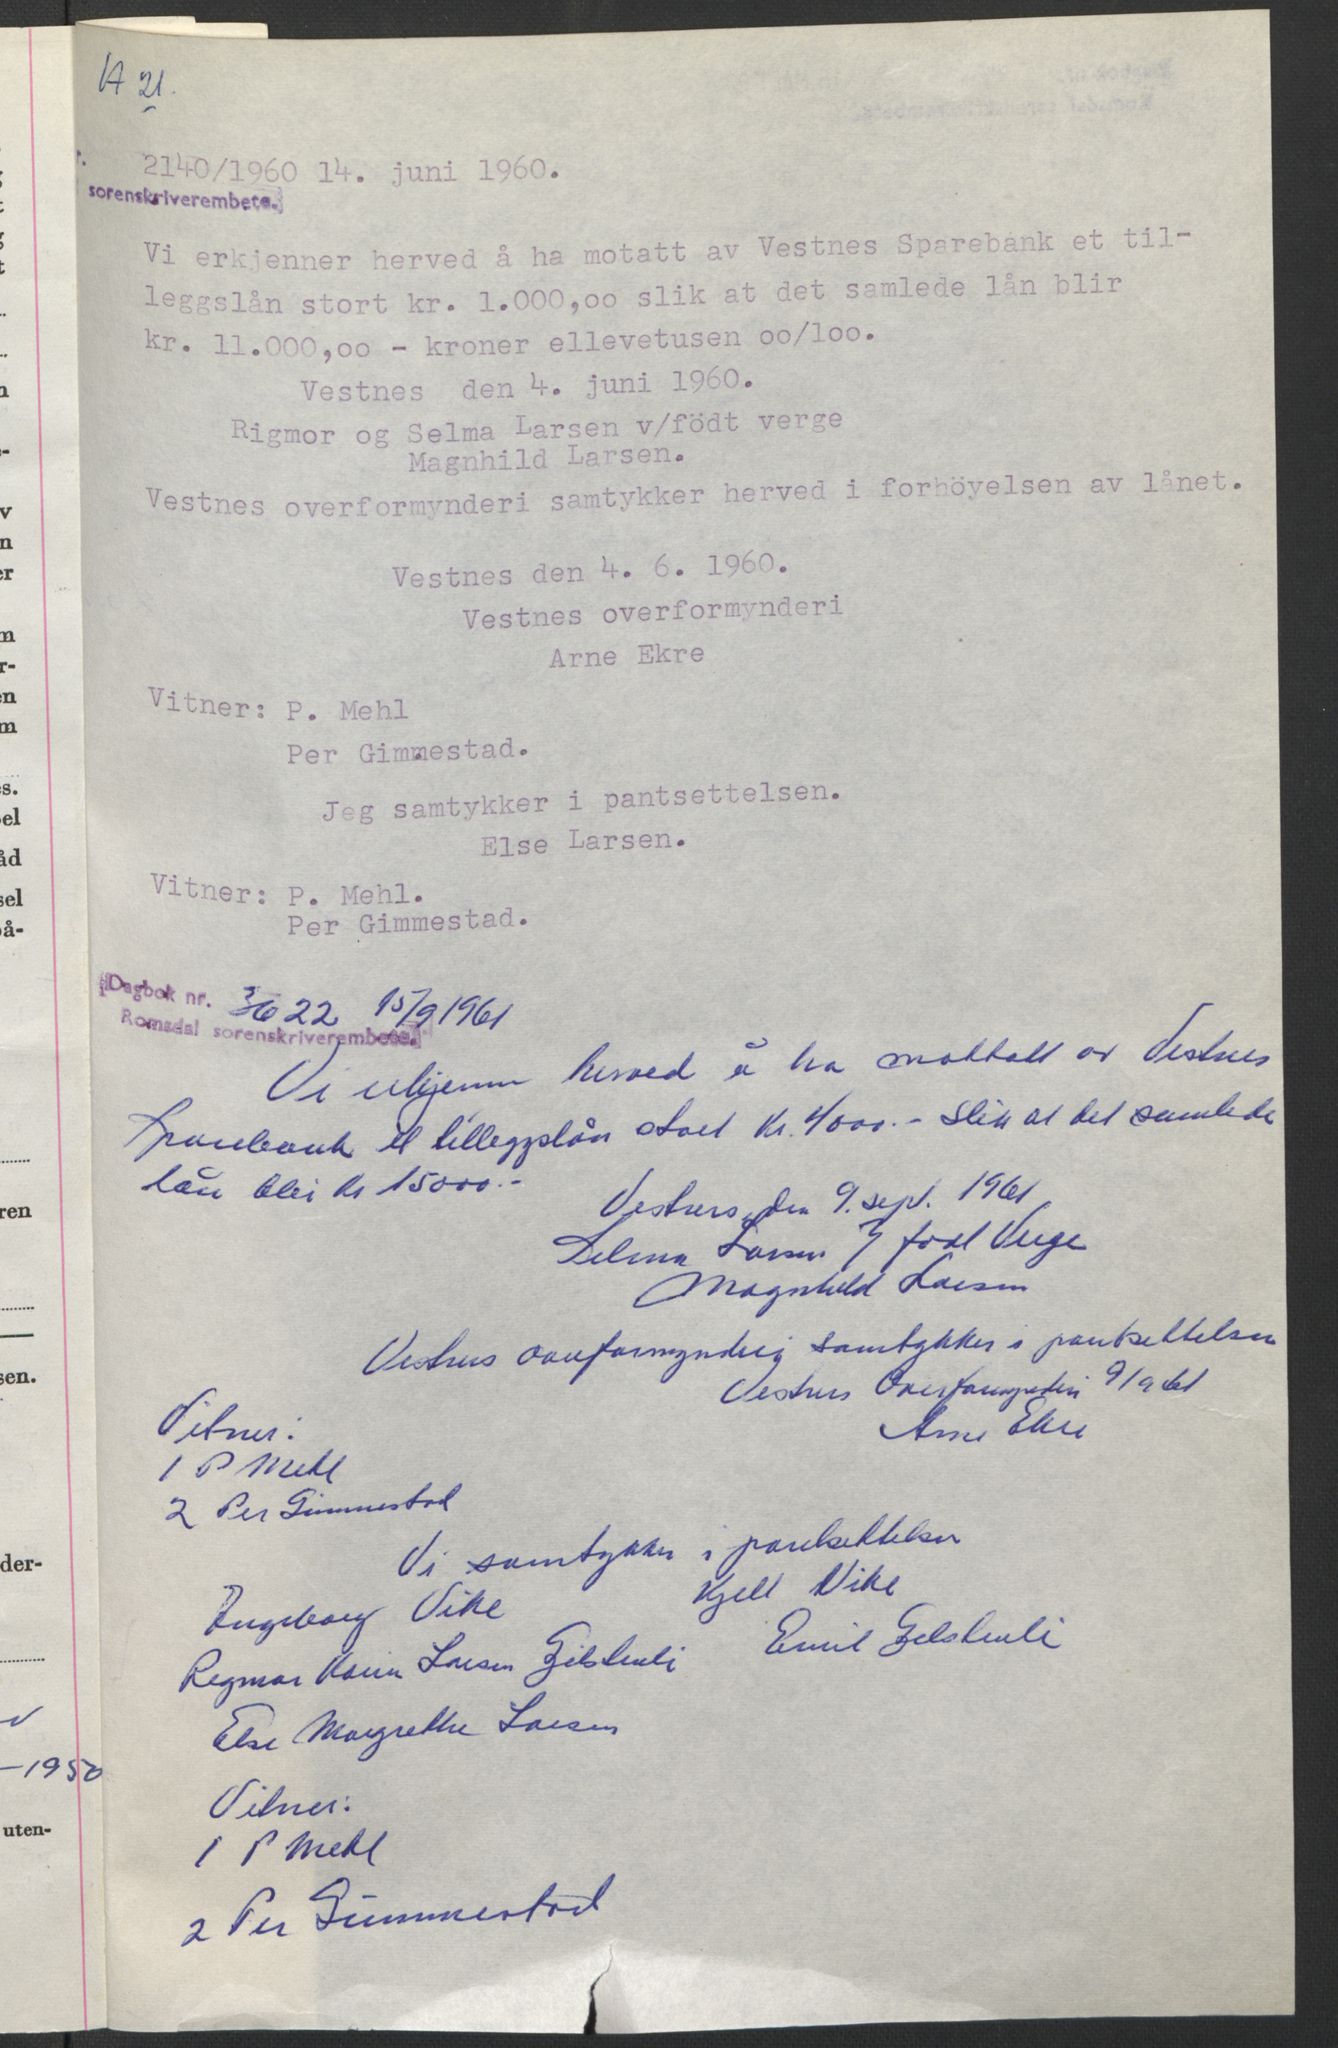 A 21.
2140/1960 14. juni 1960.
sorenskriverembete.
Vi erkjenner herved å ha motatt av Vestnes Sparebank et til-
leggslån stort kr. 1.000,oo slik at det samlede lån blir
kr. 11.000,oo - kroner ellevetusen oo/loo.
Vestnes den 4. juni 1960.
Rigmor og Selma Larsen v/födt verge
Magnhild Larsen.
Vestnes overformynderi samtykker herved i forhöyelsen av lånet.
Vestnes den 4. 6. 1960.
Vestnes overformynderi
Arne Ekre
Vitner: P. Mehl
Per Gimmestad.
Jeg samtykker i pantsettelsen.
Else Larsen.
Vitner: P. Mehl.
Per Gimmestad.
Dagbok nr. 3622 15/9 1961
Romsdal sorenskriverembete.
Vi erkjenner herved å ha mottatt av Vestnes
Sparebank et tilleggslån stort kr. 4000.- slik at det samlede
lån blir kr 15000.-
Vestnes, den 9. sept. 1961
Selma Larsen født Verge
Magnhild Larsen
Vestnes overformynderi samtykker i pantsettelsen
Vestnes Overformynderi 9/9 61
Arne Ekre
Vitner:
1 P Mehl
2 Per Gimmestad
Vi samtykker i pantsettelsen
Ingeborg Vike Kjell Vike
Regmor Karin Larsen Gjelstenli Emil Gjelstenli
Else Margrethe Larsen
Vitner:
1 P Mehl
2 Per Gimmestad
v
n
er
m
r-
en
m
s.
el
åd
sel
å-
ren
sen.
der-
-1950
uten-